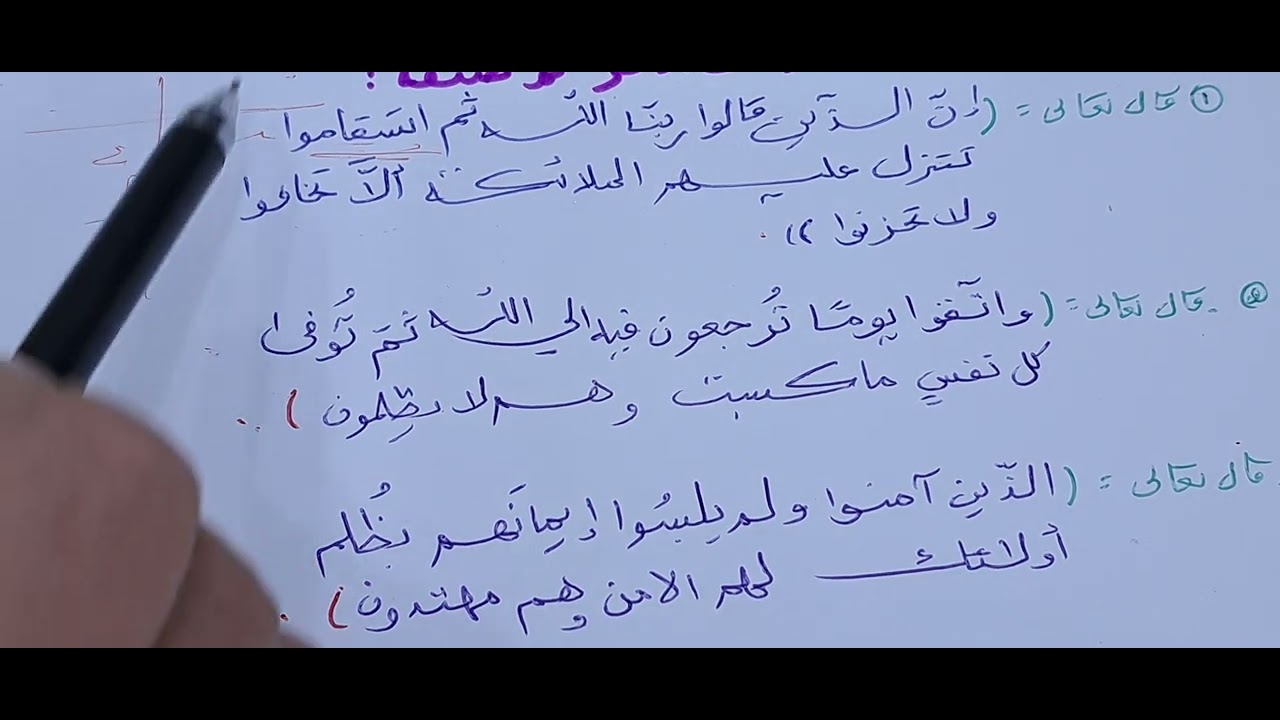 ① قال تعالى = (إنّ الذين قالوا ربنا الله ثم استقاموا
تتنزل عليهم الملائكة ألاَّ تخافوا
ولا تحزنوا)).
② قال تعالى = (واتّقوا يومًا تُرجعون فيه إلي الله ثمَ تُوفى
كل نفس ما كسبت وهم لا يظلمون)
قال تعالى = (الذّين آمنوا ولم يلبسُوا إيمانَهم بظُلم
أولائك لهم الامن وهم مهتدون)